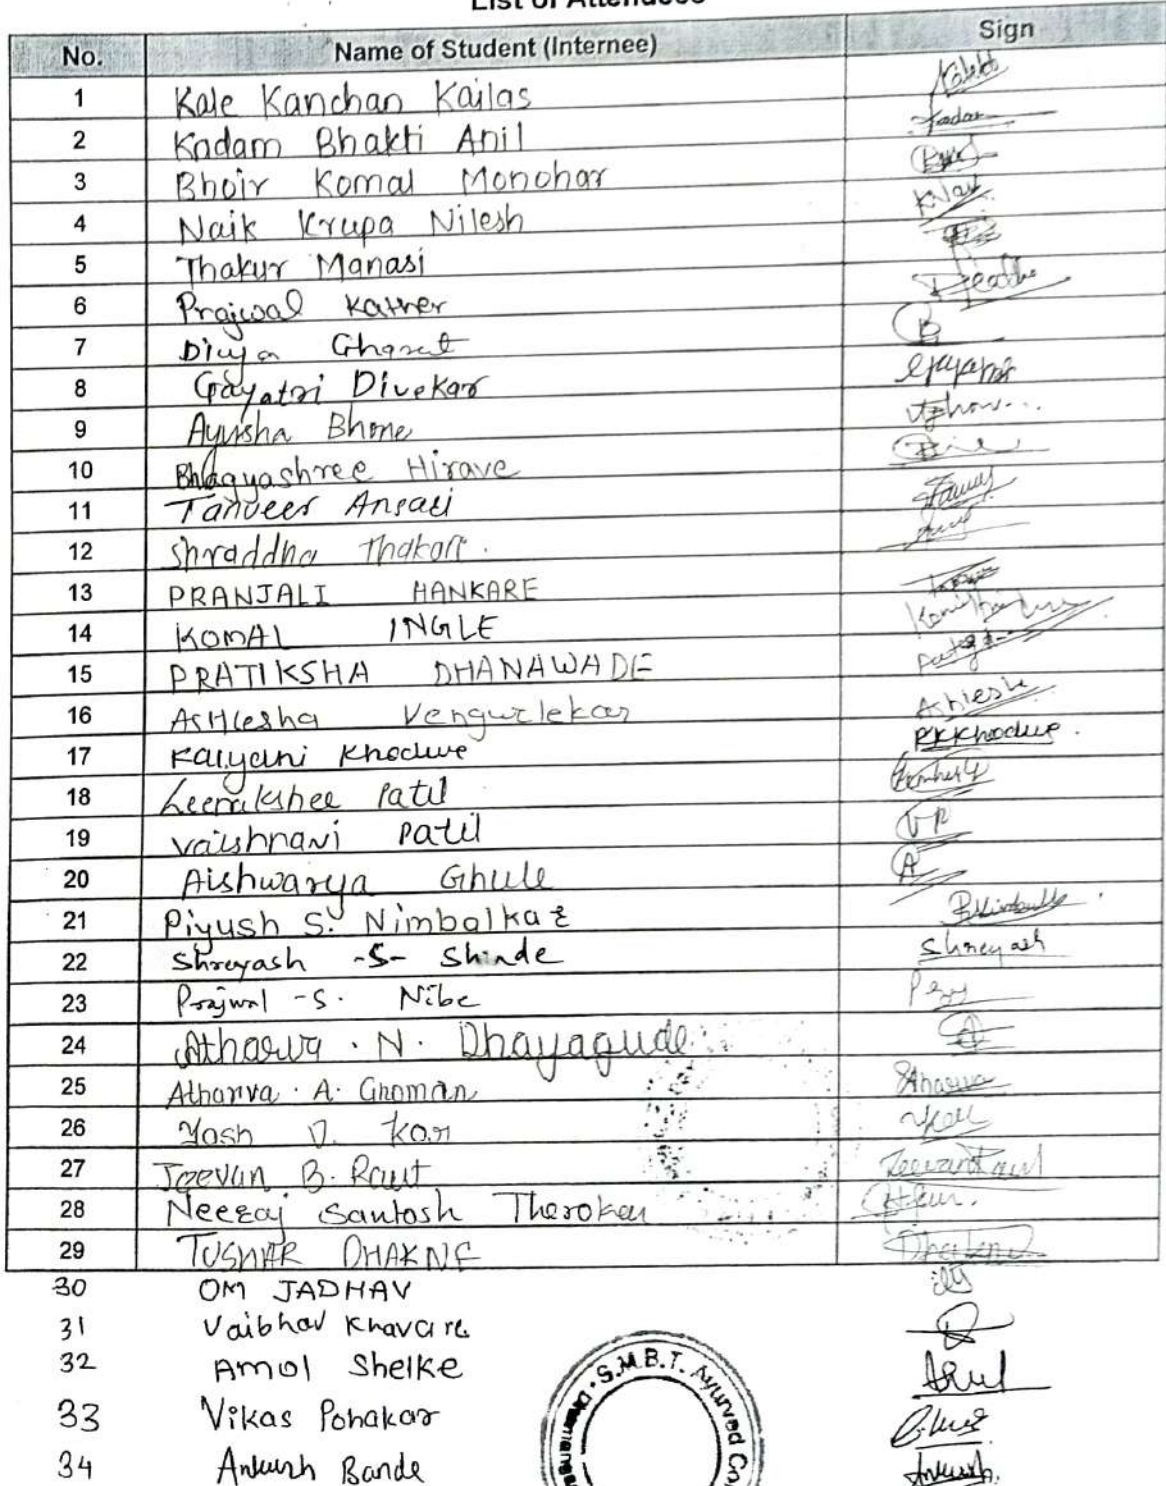 List of Attendees
No. Name of Student (Internee) Sign
1 Kale Kanchan Kailas
2 Kadam Bhakti Anil Kadam
3 Bhoir Komal Monohar
4 Naik Krupa Nilesh KNaik
5 Thakur Manasi
6 Prajwal Kather
7 Divya Gharat B
8 Gayatri Divekar Gayatri
9 Ayusha Bhone
10 Bhagyashree Hirave
11 Tanveer Ansari
12 Shraddha Thakare.
13 PRANJALI HANKARE
14 KOMAL INGLE
15 PRATIKSHA DHANAWADE
16 AsHlesha Vengurlekar Ashlesha
17 Kalyani Khodwe KKKhodwe.
18 Leenakshee Patil
19 Vaishnavi Patil VP
20 Aishwarya Ghule A
21 Piyush S. Nimbalkar
22 Shreyash -S- Shinde Shreyash
23 Prajwal -S. Nibe
24 Atharva . N. Dhayagude
25 Atharva . A. Ghoman Atharva
26 Yash D. Kar
27 Jeevan B. Raut Jeevan Raut
28 Neeraj Santosh Therokar
29 TUSHAR DHAKNE Dhakne
30 OM JADHAV
31 Vaibhav Khavare
32 Amol Shelke
33 Vikas Pohakar
34 Ankush Bande Ankush.
S.M.B.T. Ayurved